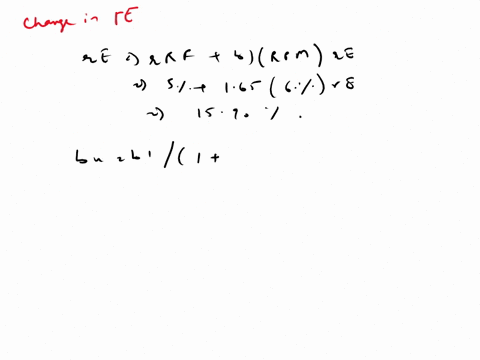 Change in rE
rE => rRF + b)(RPM) rE
=> 5% + 1.65 (6%) + 8
=> 15.90 %.
bu = b1 / (1 +